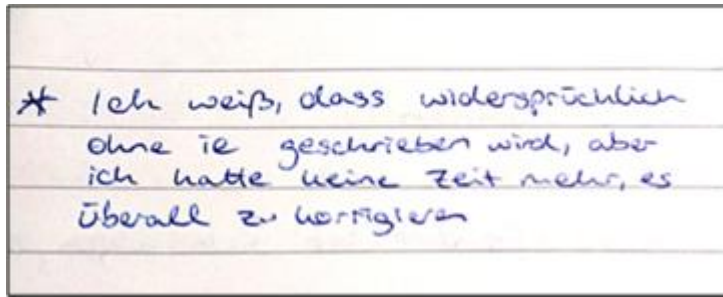 * Ich weiß, dass widersprüchlich
ohne ie geschrieben wird, aber
ich hatte keine Zeit mehr, es
überall zu korrigieren